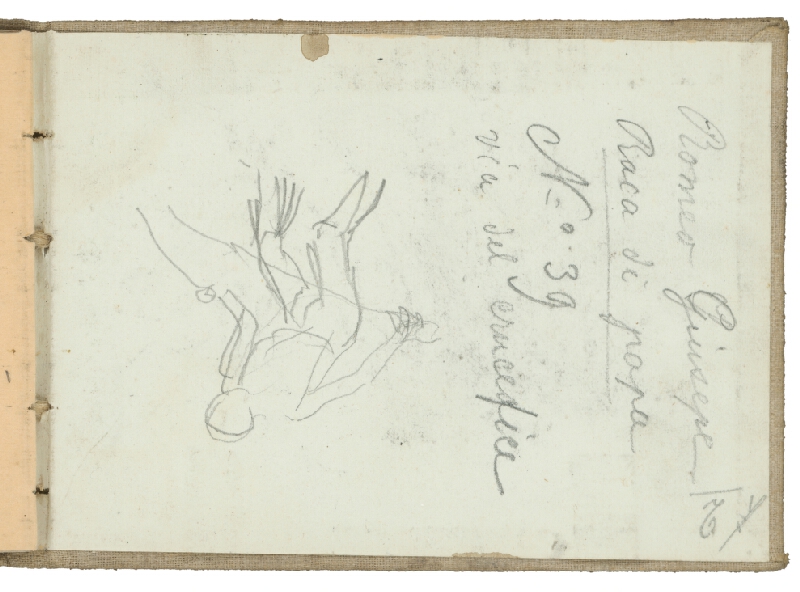 Romeo Giusepe
Raca di popa
N-o. 39
via del crucefici